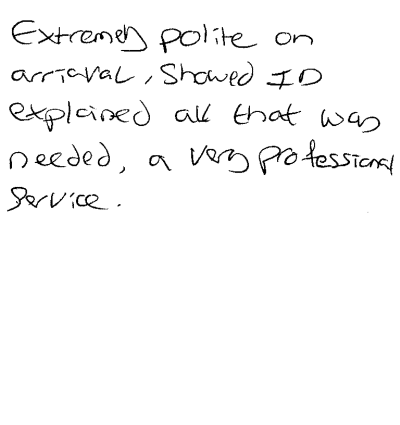 Extremely polite on
arriaval, Showed ID
explained all that was
needed, a very professional
Service.